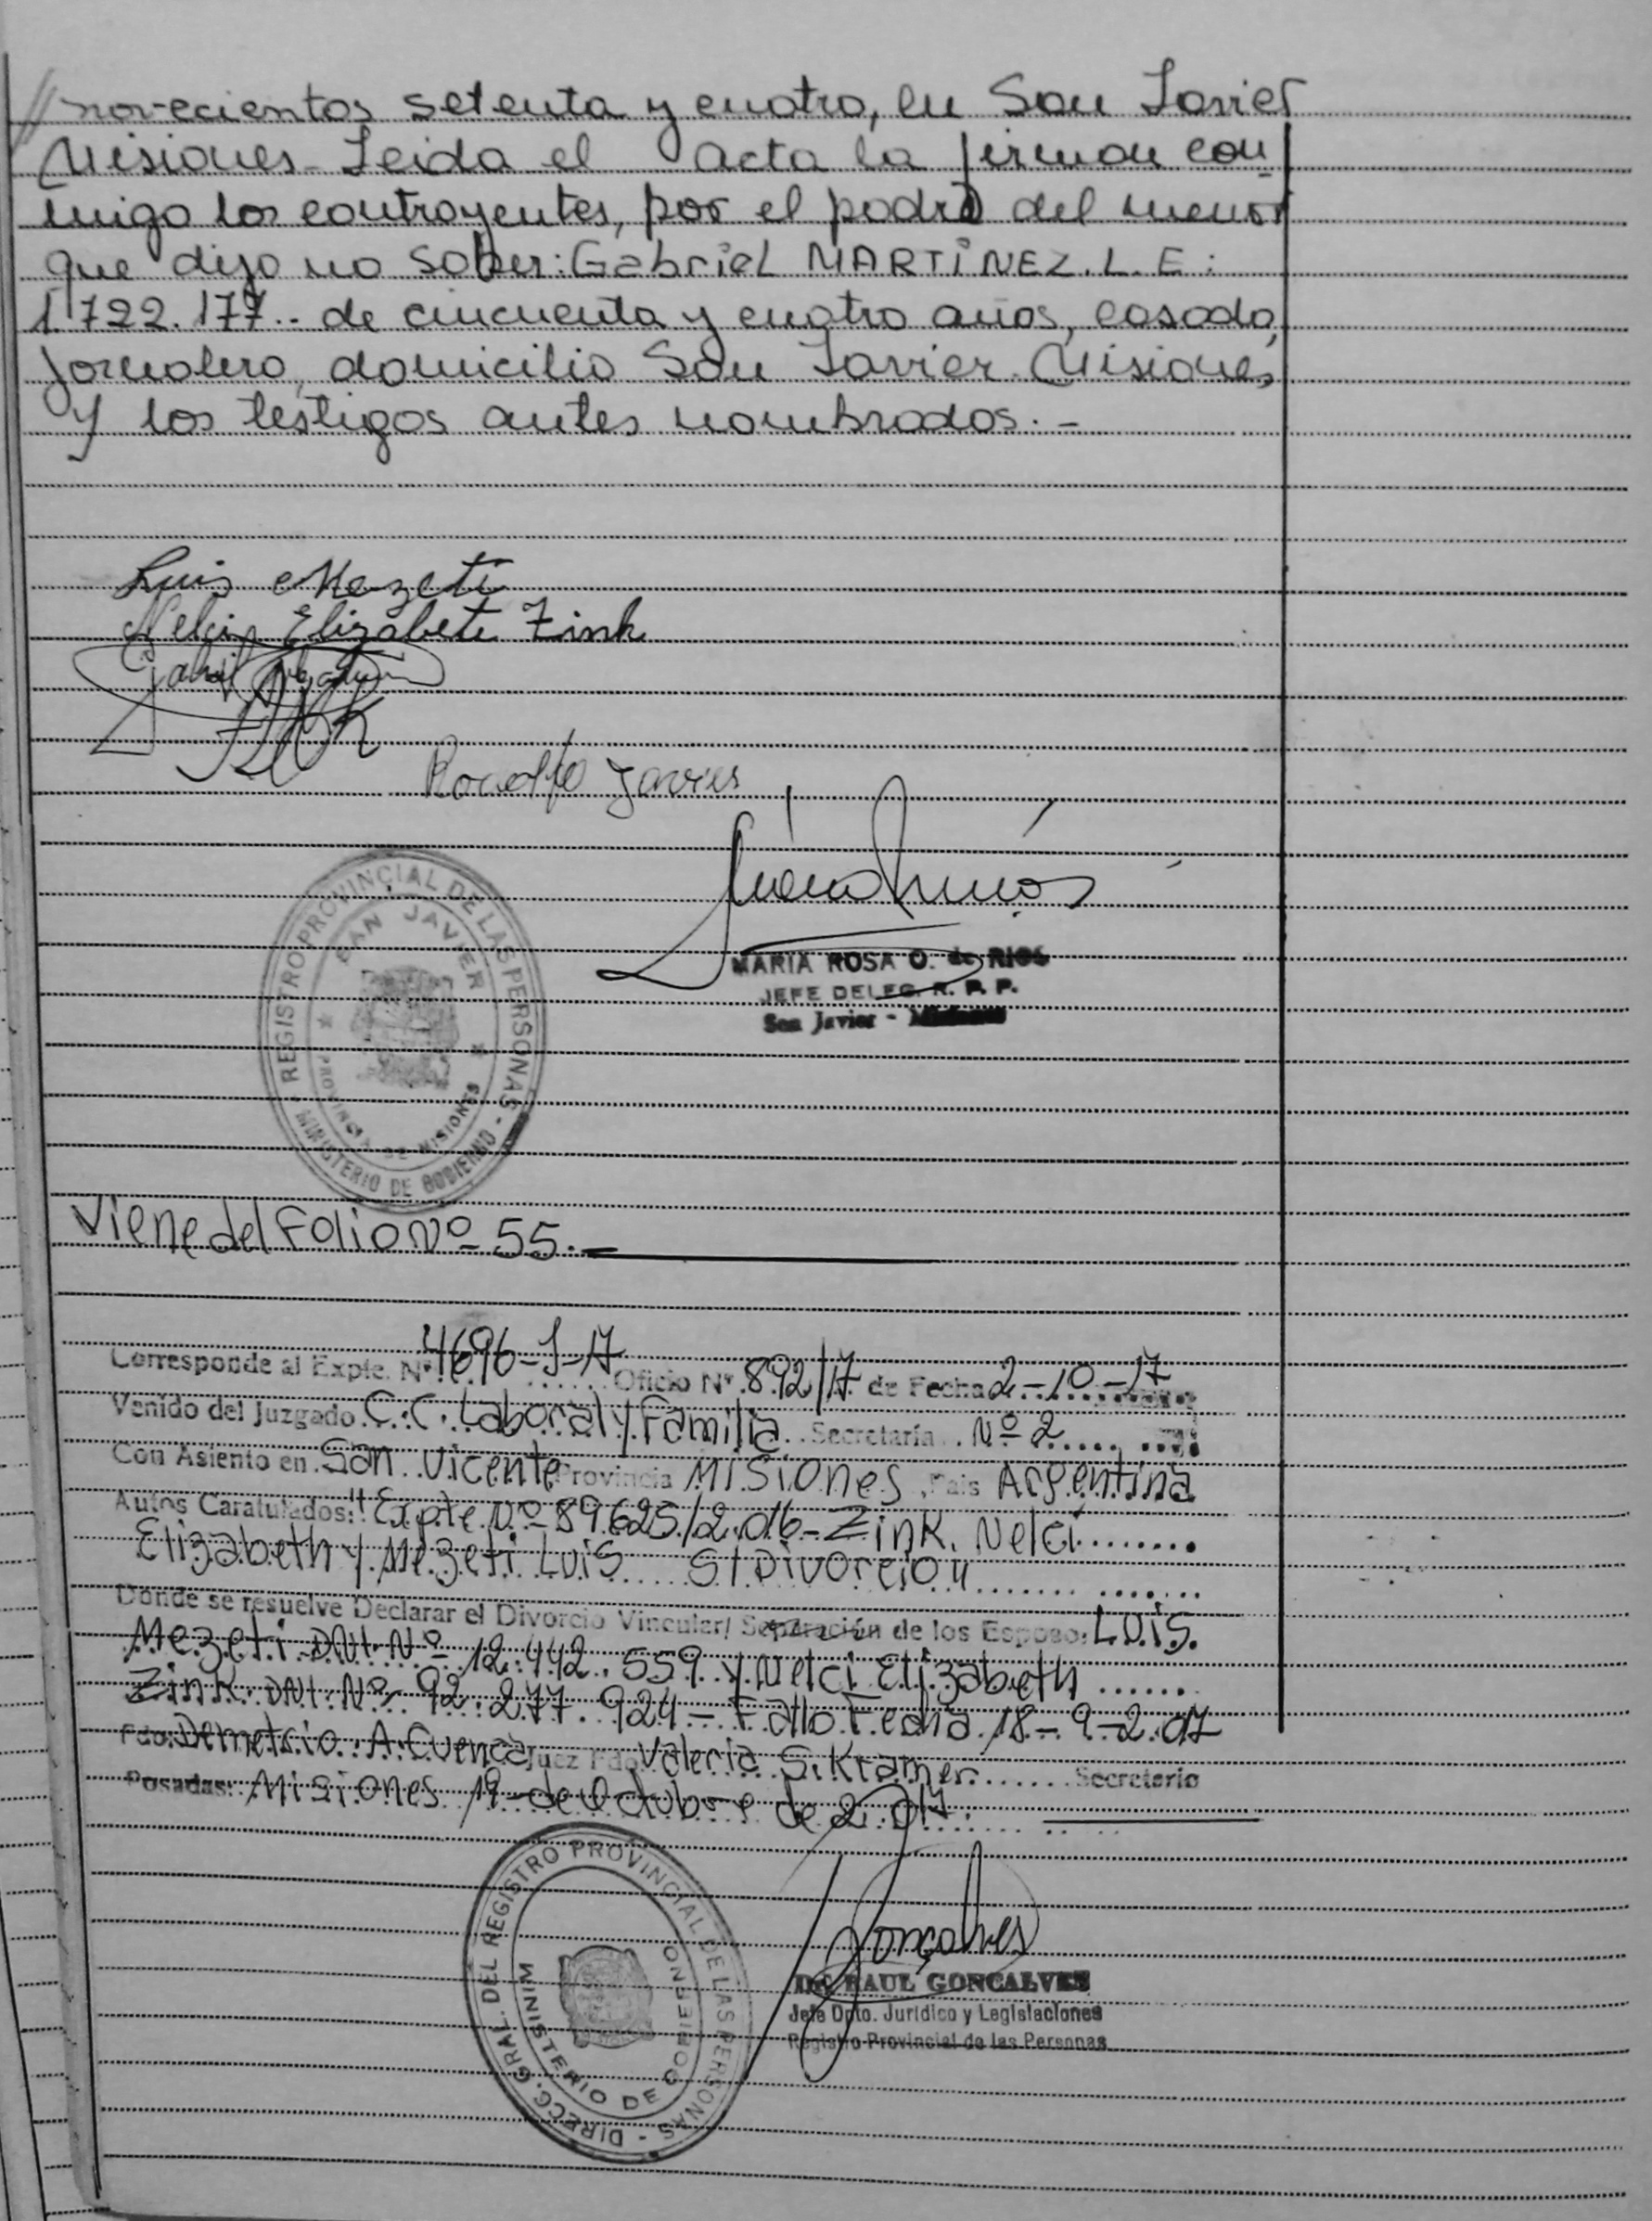 // novecientos setenta y cuatro, en San Javier
Misiones - Leida el acta la firman con
migo los contrayentes, por el padre del menor
que dijo no saber: Gabriel MARTINEZ. L. E:
1.722.177.- de cincuenta y cuatro años, casado,
jornalero, domicilio San Javier Misiones,
y los testigos antes nombrados. -
Luis Mezeti
Nelcy Elizabete Zink
Rodolfo
MARIA ROSA O. de RIOS
JEFE DELEG. R. P. P.
San Javier - Misiones
REGISTRO PROVINCIAL DE LAS PERSONAS - MINISTERIO DE GOBIERNO -
SAN JAVIER
PROVINCIA DE MISIONES
Viene del Folio Nº 55.-
Corresponde al Expte. Nº 4696-J-17 Oficio Nº 892/17 de Fecha 2-10-17
Venido del Juzgado C.C. Laboral y Familia Secretaría Nº 2
Con Asiento en San Vicente Provincia Misiones, País Argentina
Autos Caratulados: "Expte Nº 89.625/2.016 - Zink, Nelci
Elizabeth y Mezeti Luis S/Divorcio"
Donde se resuelve Declarar el Divorcio Vincular/ Separación de los Esposo: Luis
Mezeti DNI. Nº 12.442.559 y Nelci Elizabeth
Zink. DNI. Nº 92.277.924 - Fallo Fecha 18-9-2.017
Fdo. Demetrio A. Cuenca Juez Fdo. Valeria S. Kramer Secretario
Posadas: Misiones 19 de Octubre de 2.017.
DIRECC. GRAL. DEL REGISTRO PROVINCIAL DE LAS PERSONAS -
MINISTERIO DE GOBIERNO
Gonçalves
Dr. RAUL GONCALVES
Jefe Dpto. Jurídico y Legislaciones
Registro Provincial de las Personas